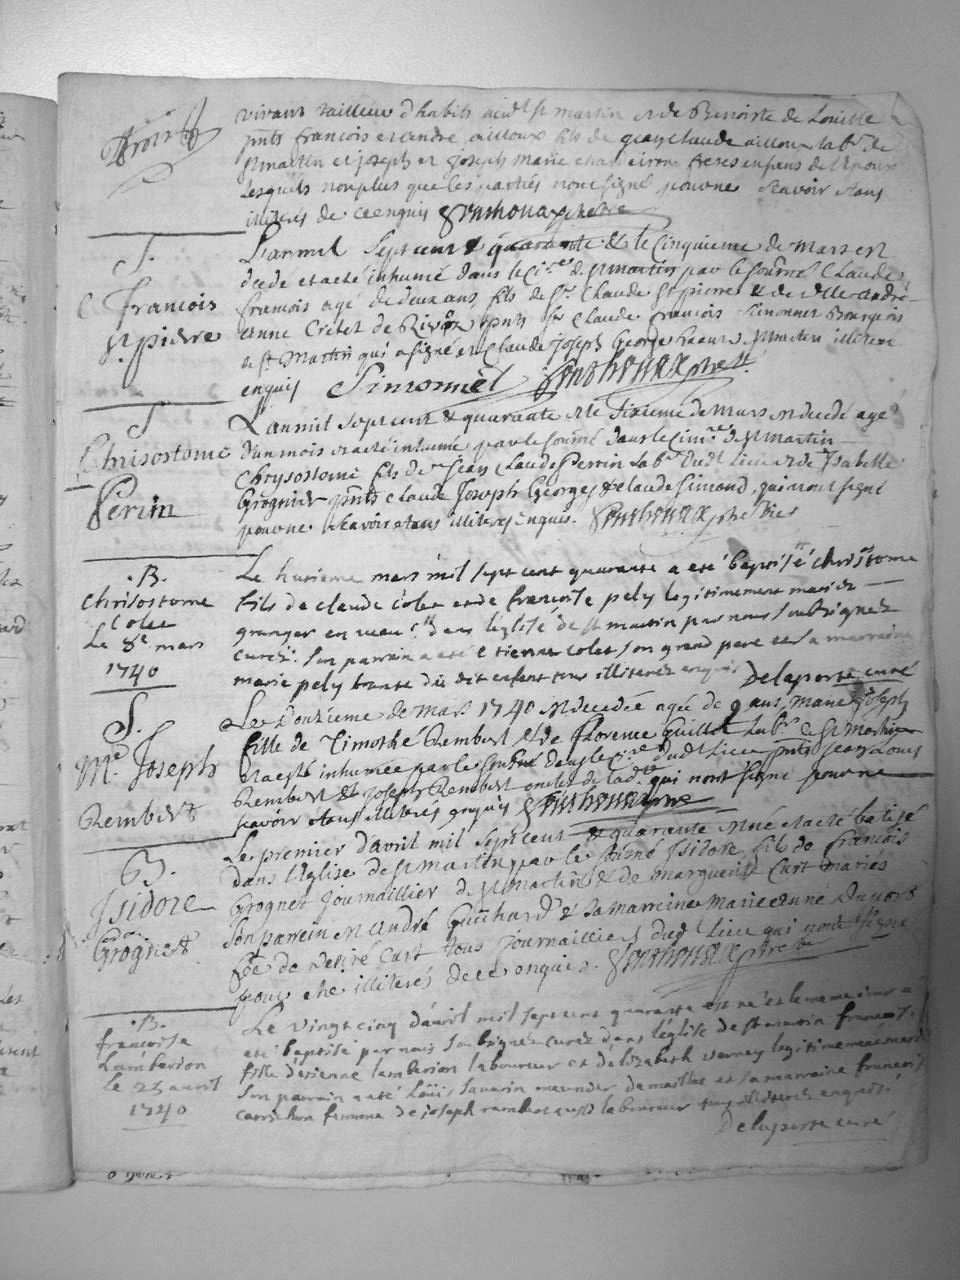 vivant tailleur d'habits aud. st martin et de Benoiste de Louille
pnts francois et andre ailloux fils de Claude ailloux lab. de
st martin et joseph et joseph marie freres enfans de
lesquels non plus que les parties n'ont signé pour ne scavoir etans
illiteres de ce enquis
S.
francois
st pierre
L'an mil sept cent & quarante & le cinquieme de mars est
decedé et a eté inhumé dans le cim.re de st martin par le sousne Claude
francois agé de deux ans fils de Sr. Claude st pierre & de dlle andré
anne Cretet de pnts sr Claude francois Simonnet Bourgeois
de st Martin qui a signé et Claude joseph George de st martin illitere
enquis Simonnet
S
Chrisostome
Perrin
L'an mil sept cent & quarante et le sixieme de mars est decedé agé
d'un mois et a eté inhumé par le sousné dans le cim.re de st martin
Chrysostome fils de Jean Claude Perrin lab. dud. lieu et de Isabelle
Grognier pnts Claude Joseph Georges & Claude Simond, qui n'ont signé
pour ne scavoir etans illiteres enquis.
.B.
Chrisostome
Colet
Le 8e mars
1740
Le huitieme mars mil sept cent quarante a eté baptisé christome
fils de claude Colet et de francoise pely legitimement mariez
granger en dans l'eglise de st martin par nous soubsignez
curé. son parrain a eté Etienne Colet son grand pere et sa marraine
marie pely tante du dit enfant tous illiterez enquis Delaporte curé
S.
M.e Joseph
Rembert
Le douzieme de mars 1740 est decedée agée de 9 ans, marie joseph
fille de Timothé Rembert & de Florence Guillot lab. a st martin
et a esté inhumée par le sousné dans le cim.re dud. Lieu pnts jean Louis
Rembert & Joseph Rembert oncles de lad.te qui n'ont signé pour ne
scavoir etans illiteres enquis
B.
Isidore
Grognet
Le premier d'avril mil sept cent & quarante est né et a eté batisé
dans l'Eglise de st martin par le sousné Isidore, fils de francois
Grognet journaillier de st martin & de marguerite Cart mariés
son parrein est André Guichard & sa marreine marie anne
fe de Desiré Cart tous journailliers dud. Lieu qui n'ont signé
pour etre illiterés de ce enquis.
.B.
francoise
Lamberion
le 25 avril
1740
Le vingt cinq d'avril mil sept cent quarante est né et le meme jour a
eté baptisé par nous soubsignez curez dans l'eglise de st martin francoise
fille d'etienne lamberion laboureur et d'elizabeth verney legitimement mariez
son parrain a eté Loüis meunier de et sa marraine francoise
femme de joseph rambert aussi laboureur tous illiterez enquis.
Delaporte curé